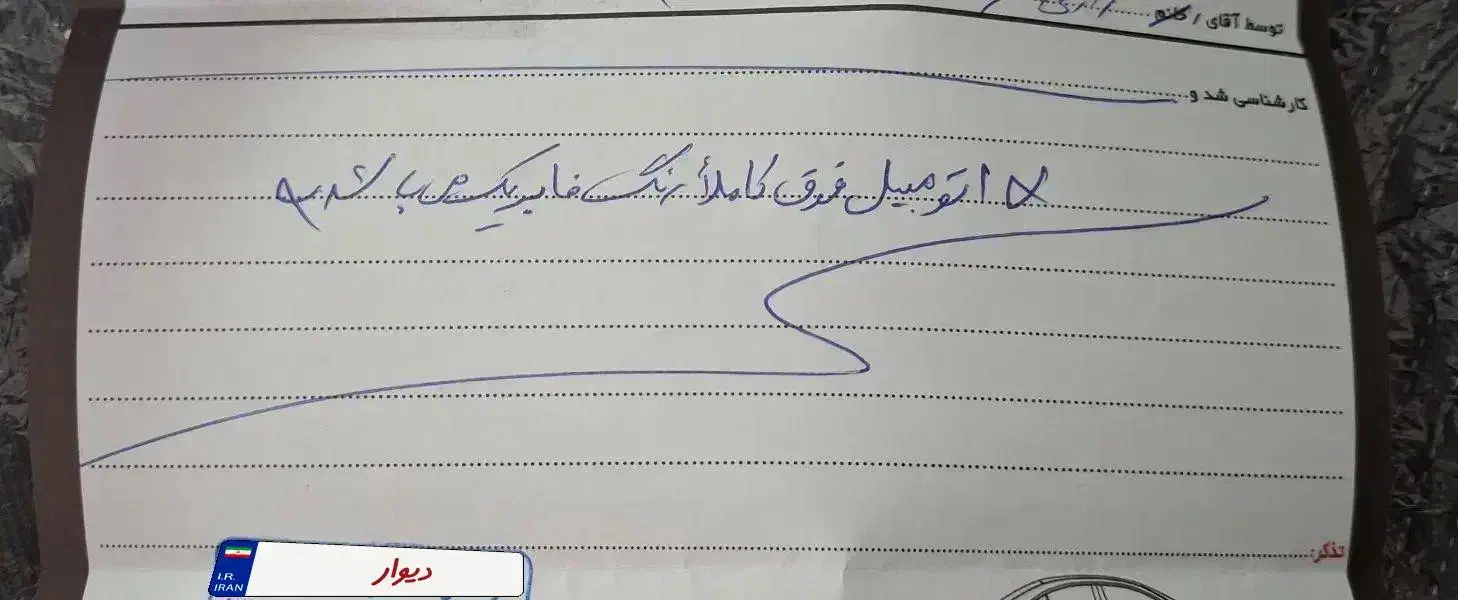 توسط آقای / خانم
کارشناسی شد و
اتومبیل فوق کاملاً رنگ فابریک می باشد
تذکر:
I.R.
IRAN
دیوار